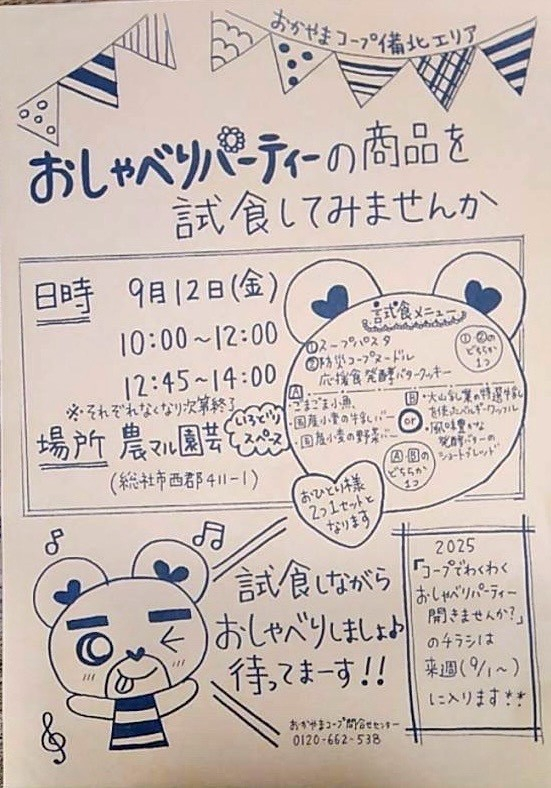 おかやまコープ備北エリア
おしゃべりパーティーの商品を
試食してみませんか
日時 9月12日(金)
10:00～12:00
12:45～14:00
※それぞれなくなり次第終了
場所 農マル園芸
いろどり
スペース
(総社市西郡411-1)
試食メニュー
①スープパスタ
②防災コープヌードル
応援食 発酵バタークッキー
①②の
どちらか
1つ
A
・ごまごま小魚、
・国産小麦の牛乳バー
・国産小麦の野菜バー
or
B
・大山乳業の特選牛乳
を使ったベルギーワッフル
・風味豊かな
発酵バターの
ショートブレッド
A・Bの
どちらか
1つ
おひとり様
2つ1セットと
なります
試食しながら
おしゃべりしましょ♪
待ってまーす!!
おかやまコープ問合せセンター
0120-662-538
2025
「コープでわくわく
おしゃべりパーティー
開きませんか?」
のチラシは
来週(9/1～)
に入ります!!